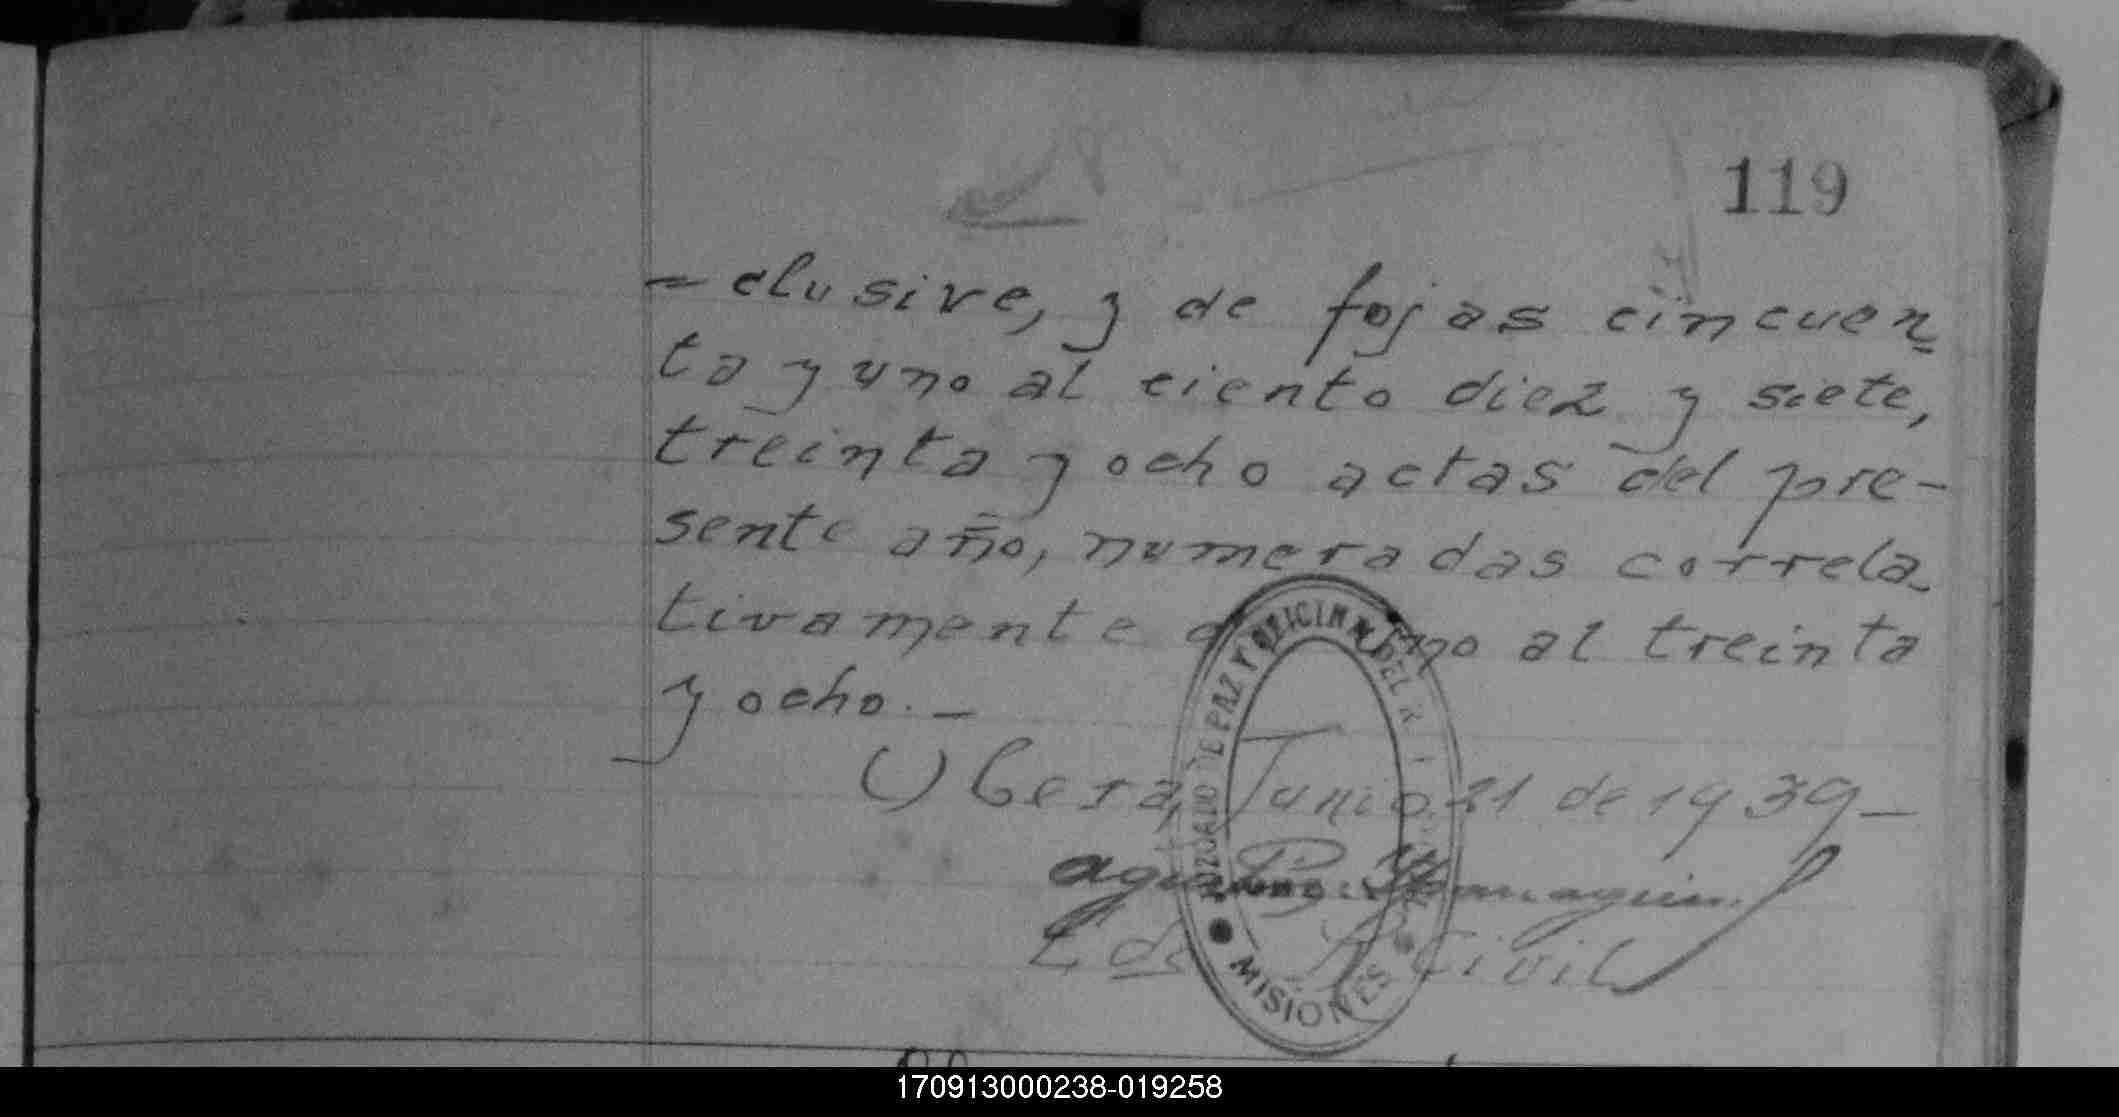 119
- clusive, y de fojas cincuen-
ta y uno al ciento diez y siete,
treinta y ocho actas del pre-
sente año, numeradas correla-
tivamente al treinta
y ocho. -
Obera, Junio 21 de 1939 -
Civil
JUZGADO DE PAZ Y OFICINA DEL
MISIONES
170913000238-019258